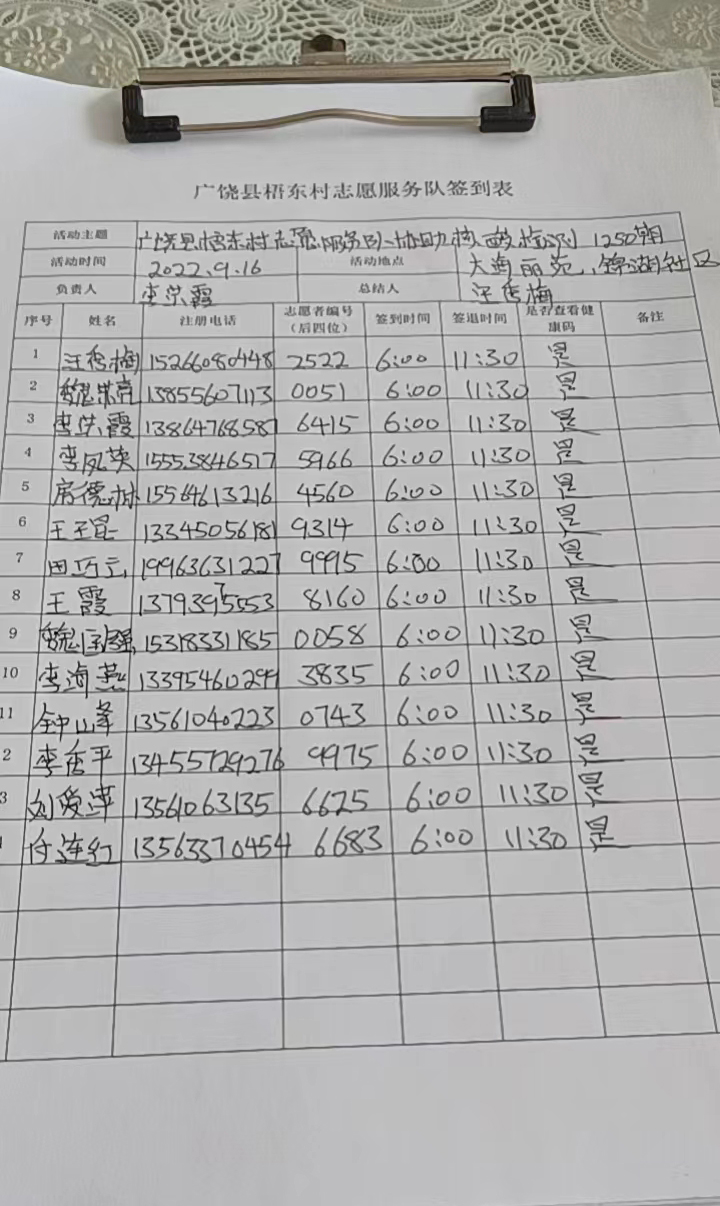 广饶县梧东村志愿服务队签到表
活动主题 广饶县梧东村志愿服务队、协助核酸检测 1250期
活动时间 2022.9.16 活动地点 大海丽苑、锦湖社区
负责人 李荣霞 总结人 汪秀梅
序号 姓名 注册电话 志愿者编号（后四位） 签到时间 签退时间 是否查看健康码 备注
1 汪秀梅 15266080448 2522 6:00 11:30 是
2 魏荣亮 13855607113 0051 6:00 11:30 是
3 李荣霞 13864768587 6415 6:00 11:30 是
4 李凤英 15553846517 5966 6:00 11:30 是
5 房德林 15564613216 4560 6:00 11:30 是
6 13345056181 9314 6:00 11:30 是
7 田巧云 19963631227 9995 6:00 11:30 是
8 王霞 8160 6:00 11:30 是
9 魏国强 15318331185 0058 6:00 11:30 是
10 李海燕 13395460299 3835 6:00 11:30 是
11 钟山峰 13561040223 0743 6:00 11:30 是
2 李秀平 13455729276 9975 6:00 11:30 是
3 刘爱萍 13561063135 6625 6:00 11:30 是
付连红 13563370454 6683 6:00 11:30 是